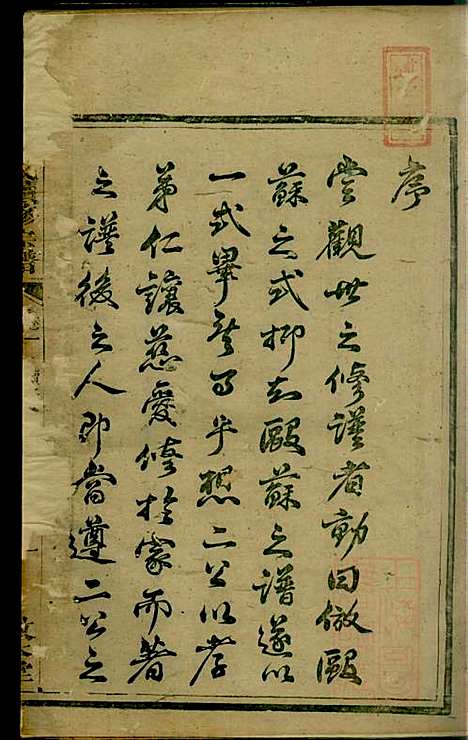 序
嘗觀世之修譜者動曰倣毆
蘇之式抑知毆蘇之譜遂以
一式畢乃事乎想二公以孝
弟仁讓慈愛修於家而著
之譜後之人即當遵二公之